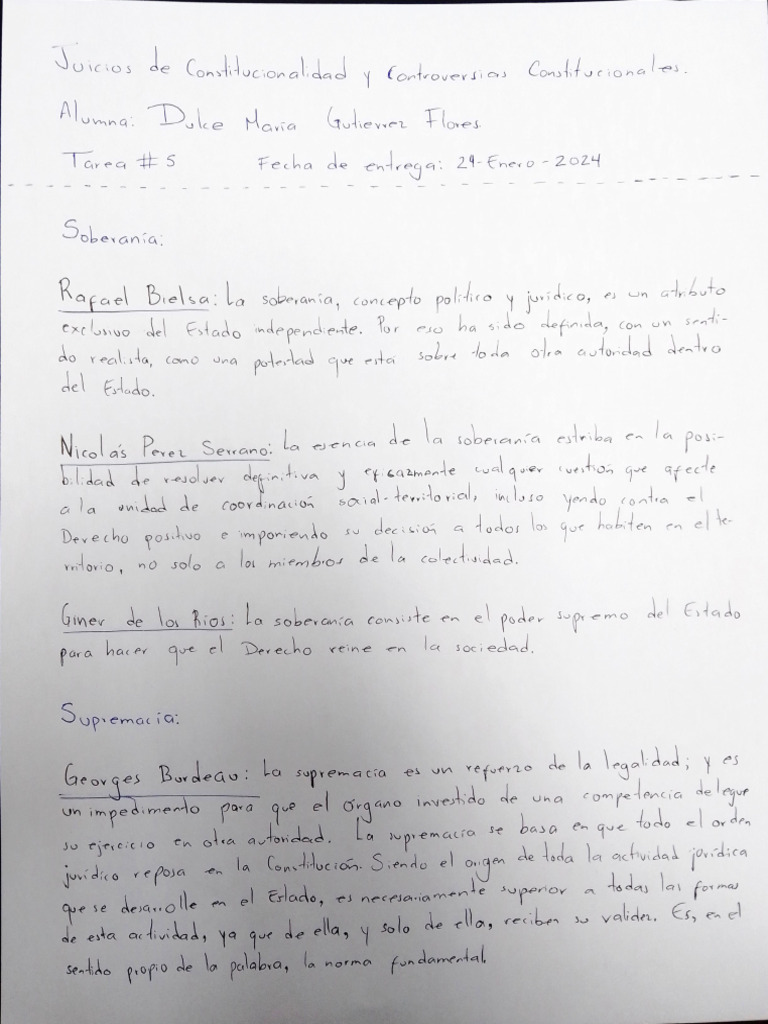 Juicios de Constitucionalidad y Controversias Constitucionales.
Alumna: Dulce María Gutierrez Flores
Tarea # 5 Fecha de entrega: 29-Enero-2024
Soberanía:
Rafael Bielsa: La soberanía, concepto político y jurídico, es un atributo
exclusivo del Estado independiente. Por eso ha sido definida, con un senti-
do realista, como una potestad que está sobre toda otra autoridad dentro
del Estado.
Nicolás Perez Serrano: La esencia de la soberanía estriba en la posi-
bilidad de resolver definitiva y eficazmente cualquier cuestión que afecte
a la unidad de coordinación social-territorial, incluso yendo contra el
Derecho positivo e imponiendo su decisión a todos los que habiten en el te-
rritorio, no solo a los miembros de la colectividad.
Giner de los Rios: La soberanía consiste en el poder supremo del Estado
para hacer que el Derecho reine en la sociedad.
Supremacía:
Georges Burdeau: La supremacía es un refuerzo de la legalidad; y es
un impedimento para que el órgano investido de una competencia delegue
su ejercicio en otra autoridad. La supremacía se basa en que todo el orden
jurídico reposa en la Constitución. Siendo el origen de toda la actividad jurídica
que se desarrolle en el Estado, es necesariamente superior a todas las formas
de esta actividad, ya que de ella, y solo de ella, reciben su validez. Es, en el
sentido propio de la palabra, la norma fundamental.